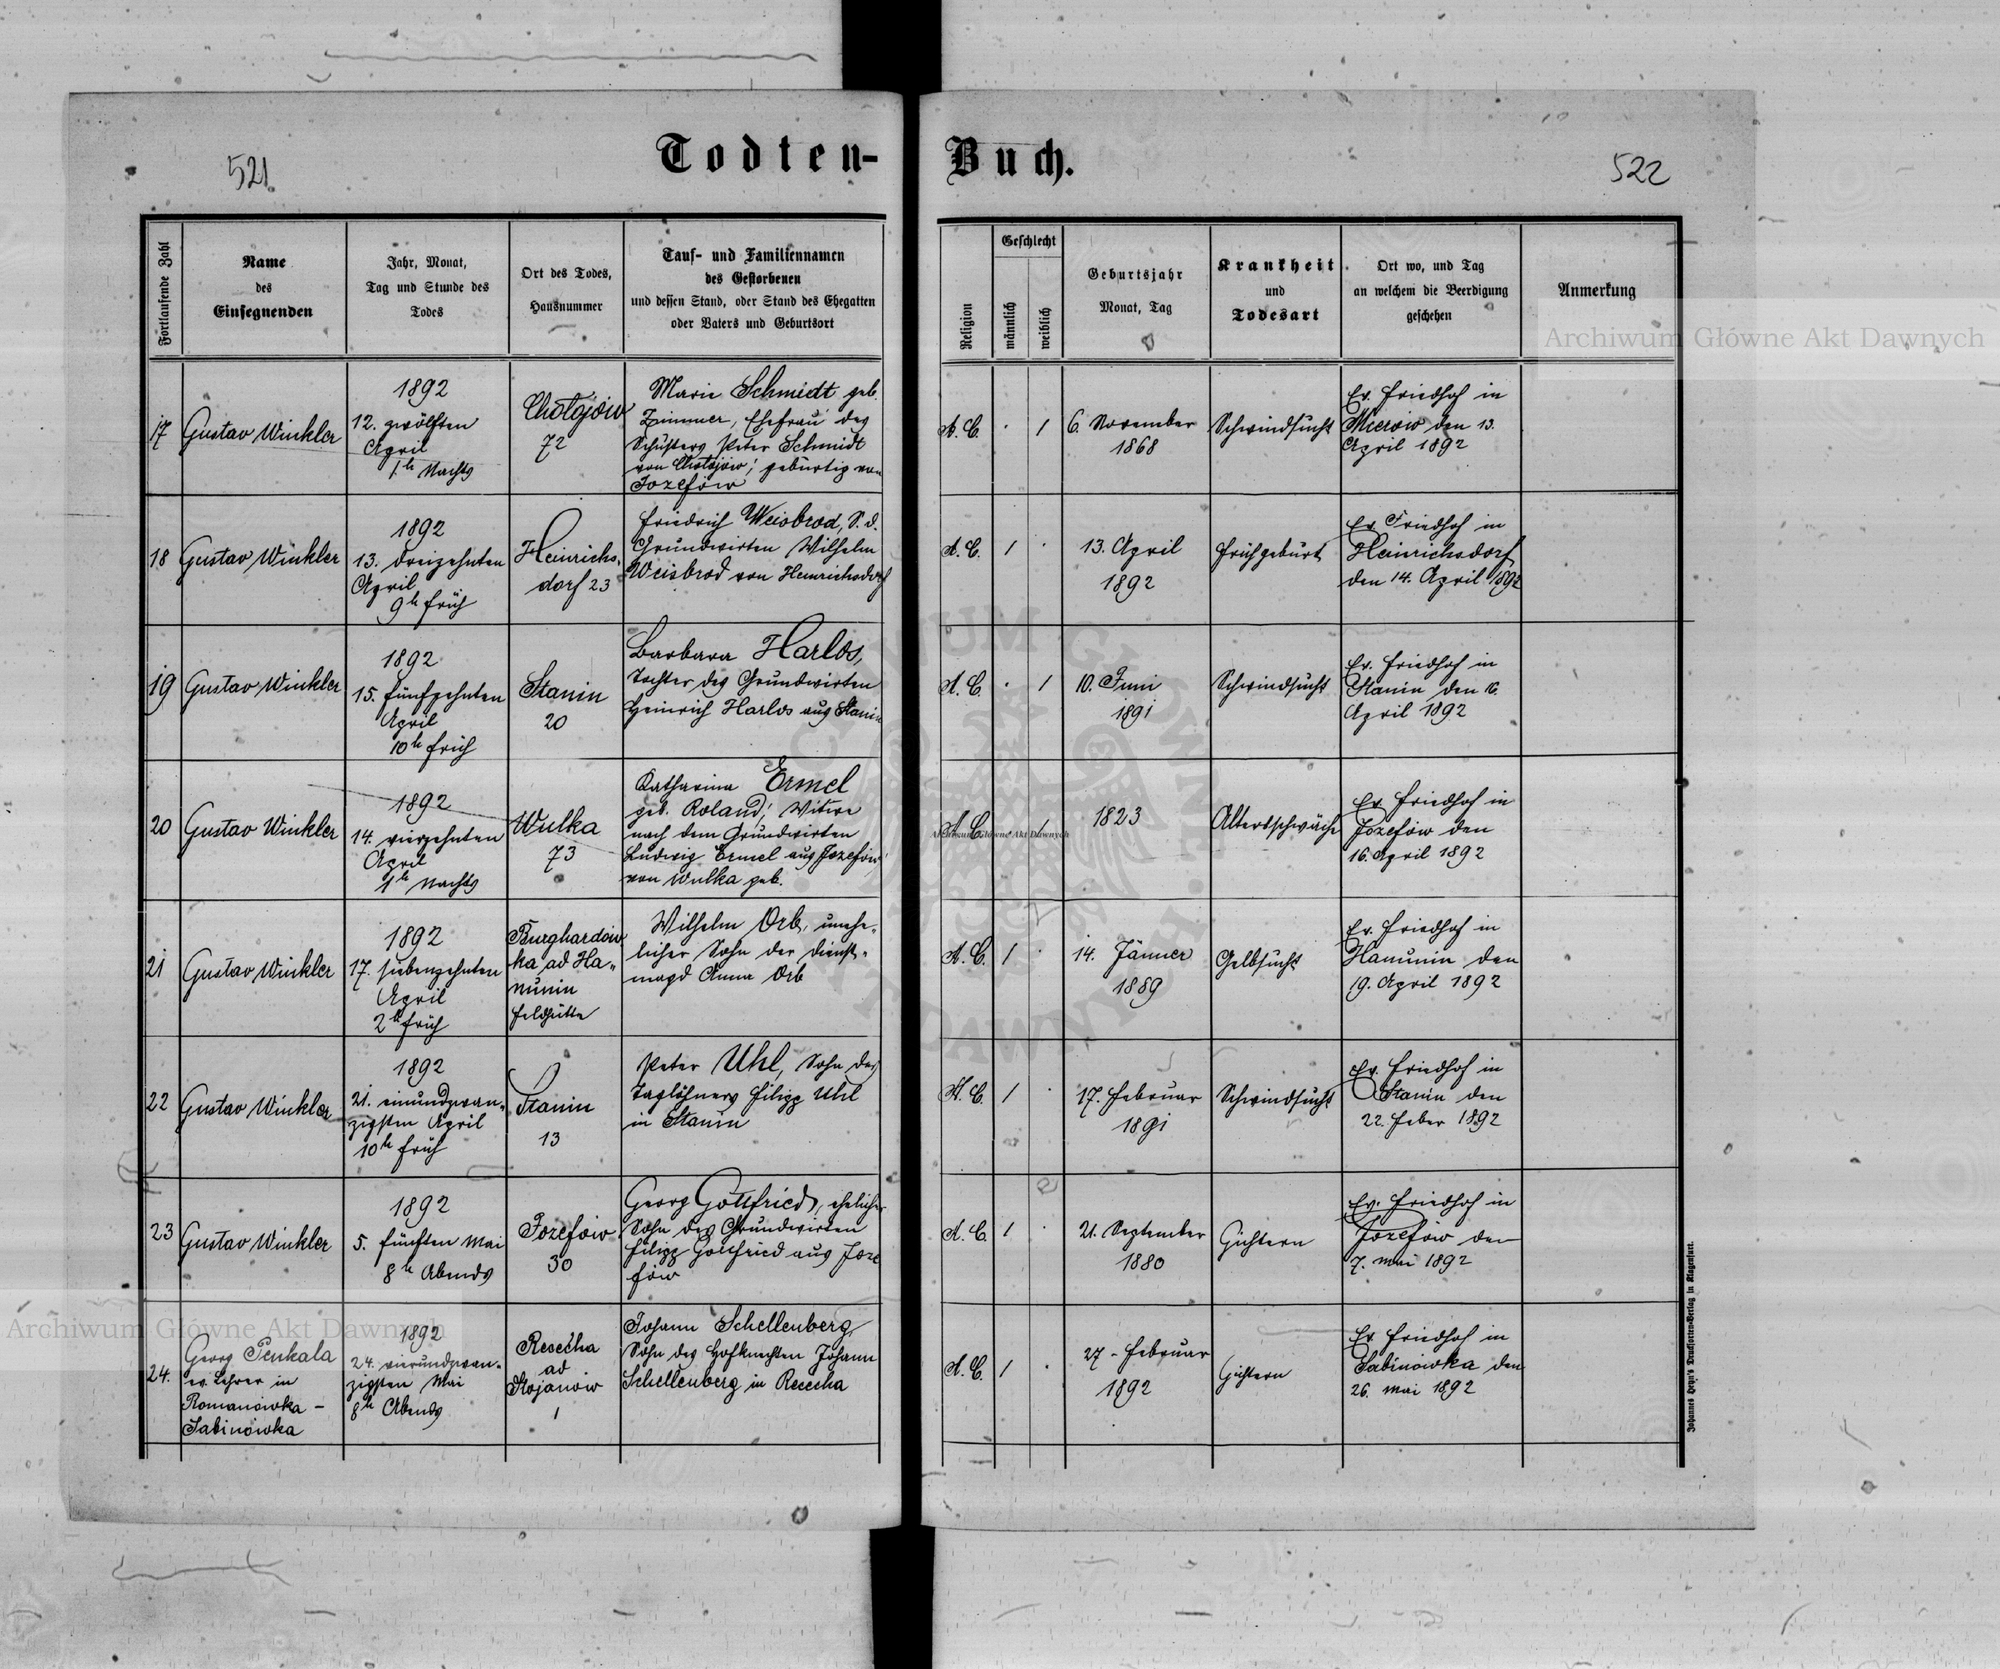 521
Todten-
Buch.
522
Fortlaufende Zahl
Name
des
Einsegnenden
Jahr, Monat,
Tag und Stunde des
Todes
Ort des Todes,
Hausnummer
Tauf- und Familiennamen
des Gestorbenen
und dessen Stand, oder Stand des Ehegatten
oder Vaters und Geburtsort
Religion
Geschlecht
männlich
weiblich
Geburtsjahr
Monat, Tag
Krankheit
und
Todesart
Ort wo, und Tag
an welchem die Beerdigung
geschehen
Anmerkung
17
Gustav Winkler
1892
12. zwölften
April
1h Nachts
Chotojów
72
Marie Schmidt geb.
Zimmer, Ehefrau des
Schusters Peter Schmidt
von Chotojów, gebürtig von
Jozefów
A. C.
·
1
6. November
1868
Schwindsucht
Ev. Friedhof in
Mierów den 13.
April 1892
18
Gustav Winkler
1892
13. dreizehnten
April
9h früh
Heinrichs-
dorf 23
Friedrich Weisbrod, S. d.
Grundwirten Wilhelm
Weisbrod von Heinrichsdorf
A. C.
1
·
13. April
1892
Frühgeburt
Ev. Friedhof in
Heinrichsdorf
den 14. April 1892
19
Gustav Winkler
1892
15. fünfzehnten
April
10h früh
Stanin
20
Barbara Harlos,
Tochter des Grundwirten
Heinrich Harlos aus Stanin
A. C.
·
1
10. Juni
1891
Schwindsucht
Ev. Friedhof in
Stanin den 16.
April 1892
20
Gustav Winkler
1892
14. vierzehnten
April
1h Nachts
Wulka
73
Katharina Ermel
geb. Roland, Witwe
nach dem Grundwirten
Ludwig Ermel aus Jozefów,
von Wulka geb.
A. C.
·
1
1823
Altersschwäche
Ev. Friedhof in
Jozefów den
16. April 1892
21
Gustav Winkler
1892
17. siebenzehnten
April
2h früh
Burghardów
ka ad Ha-
nunin
Feldhütte
Wilhelm Orb, unehe-
licher Sohn der Dienst-
magd Anna Orb
A. C.
1
·
14. Jänner
1889
Gelbsucht
Ev. Friedhof in
Hanunin den
19. April 1892
22
Gustav Winkler
1892
21. einundzwan-
zigsten April
10h früh
Stanin
13
Peter Uhl, Sohn des
Taglöhners Filipp Uhl
in Stanin
A. C.
1
·
17. Februar
1891
Schwindsucht
Ev. Friedhof in
Stanin den
22. Feber 1892
23
Gustav Winkler
1892
5. fünften Mai
8h Abends
Jozefów
30
Georg Gottfried, ehelicher
Sohn des Grundwirten
Filipp Gottfried aus Joze
fów
A. C.
1
·
21. September
1880
Gichtern
Ev. Friedhof in
Jozefów den
7. Mai 1892
24.
Georg Penkala
ev. Lehrer in
Romanówka -
Sabinówka
1892
24. vierundzwan-
zigsten Mai
8h Abends
Rececha
ad
Stojanów
1
Johann Schellenberg,
Sohn des Hofknechten Johann
Schellenberg in Rececha
A. C.
1
·
27. Februar
1892
Gichtern
Ev. Friedhof in
Sabinówka den
26. Mai 1892
Johannes Heyn's Drucksorten-Verlag in Klagenfurt.
Archiwum Główne Akt Dawnych
Archiwum Główne Akt Dawnych
Archiwum Główne Akt Dawnych